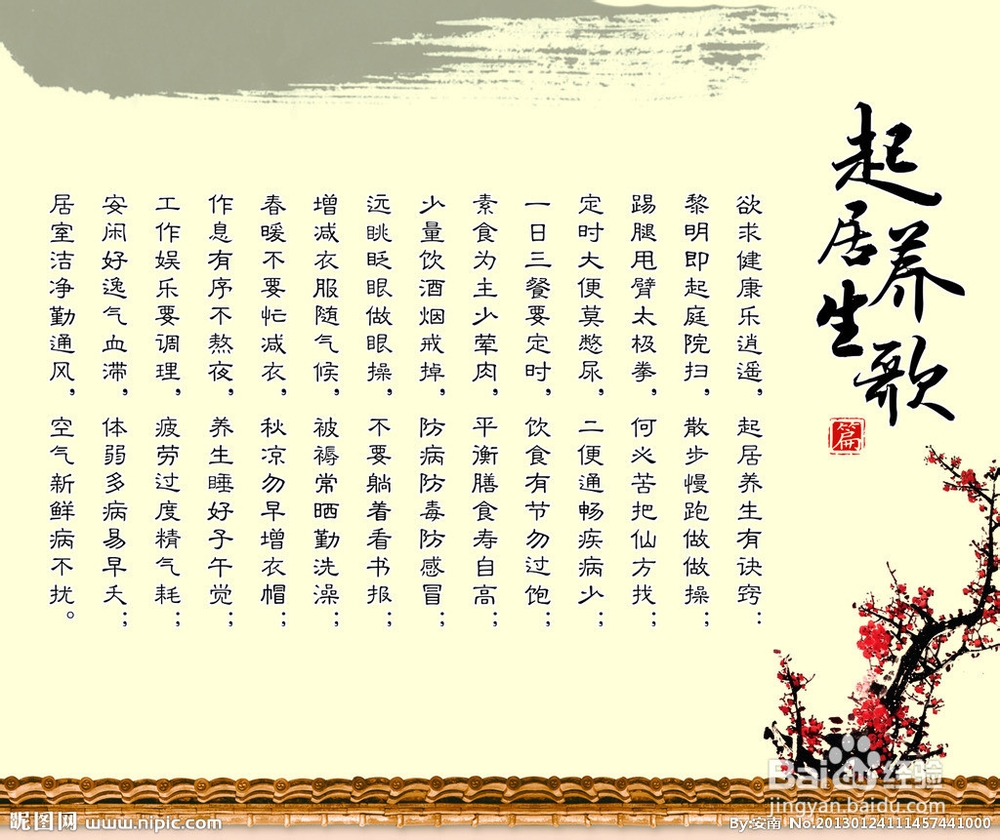 起居养生歌
篇
欲求健康乐逍遥，起居养生有诀窍：
黎明即起庭院扫，散步慢跑做做操；
踢腿甩臂太极拳，何必苦把仙方找；
定时大便莫憋尿，二便通畅疾病少；
一日三餐要定时，饮食有节勿过饱；
素食为主少荤肉，平衡膳食寿自高；
少量饮酒烟戒掉，防病防毒防感冒；
远眺眨眼做眼操，不要躺着看书报；
增减衣服随气候，被褥常晒勤洗澡；
春暖不要忙减衣，秋凉勿早增衣帽；
作息有序不熬夜，养生睡好子午觉；
工作娱乐要调理，疲劳过度精气耗；
安闲好逸气血滞，体弱多病易早夭；
居室洁净勤通风，空气新鲜病不扰。
Baidu经验
jingyan.baidu.com
昵图网 www.nipic.com
By:安南 No.20130124111457441000